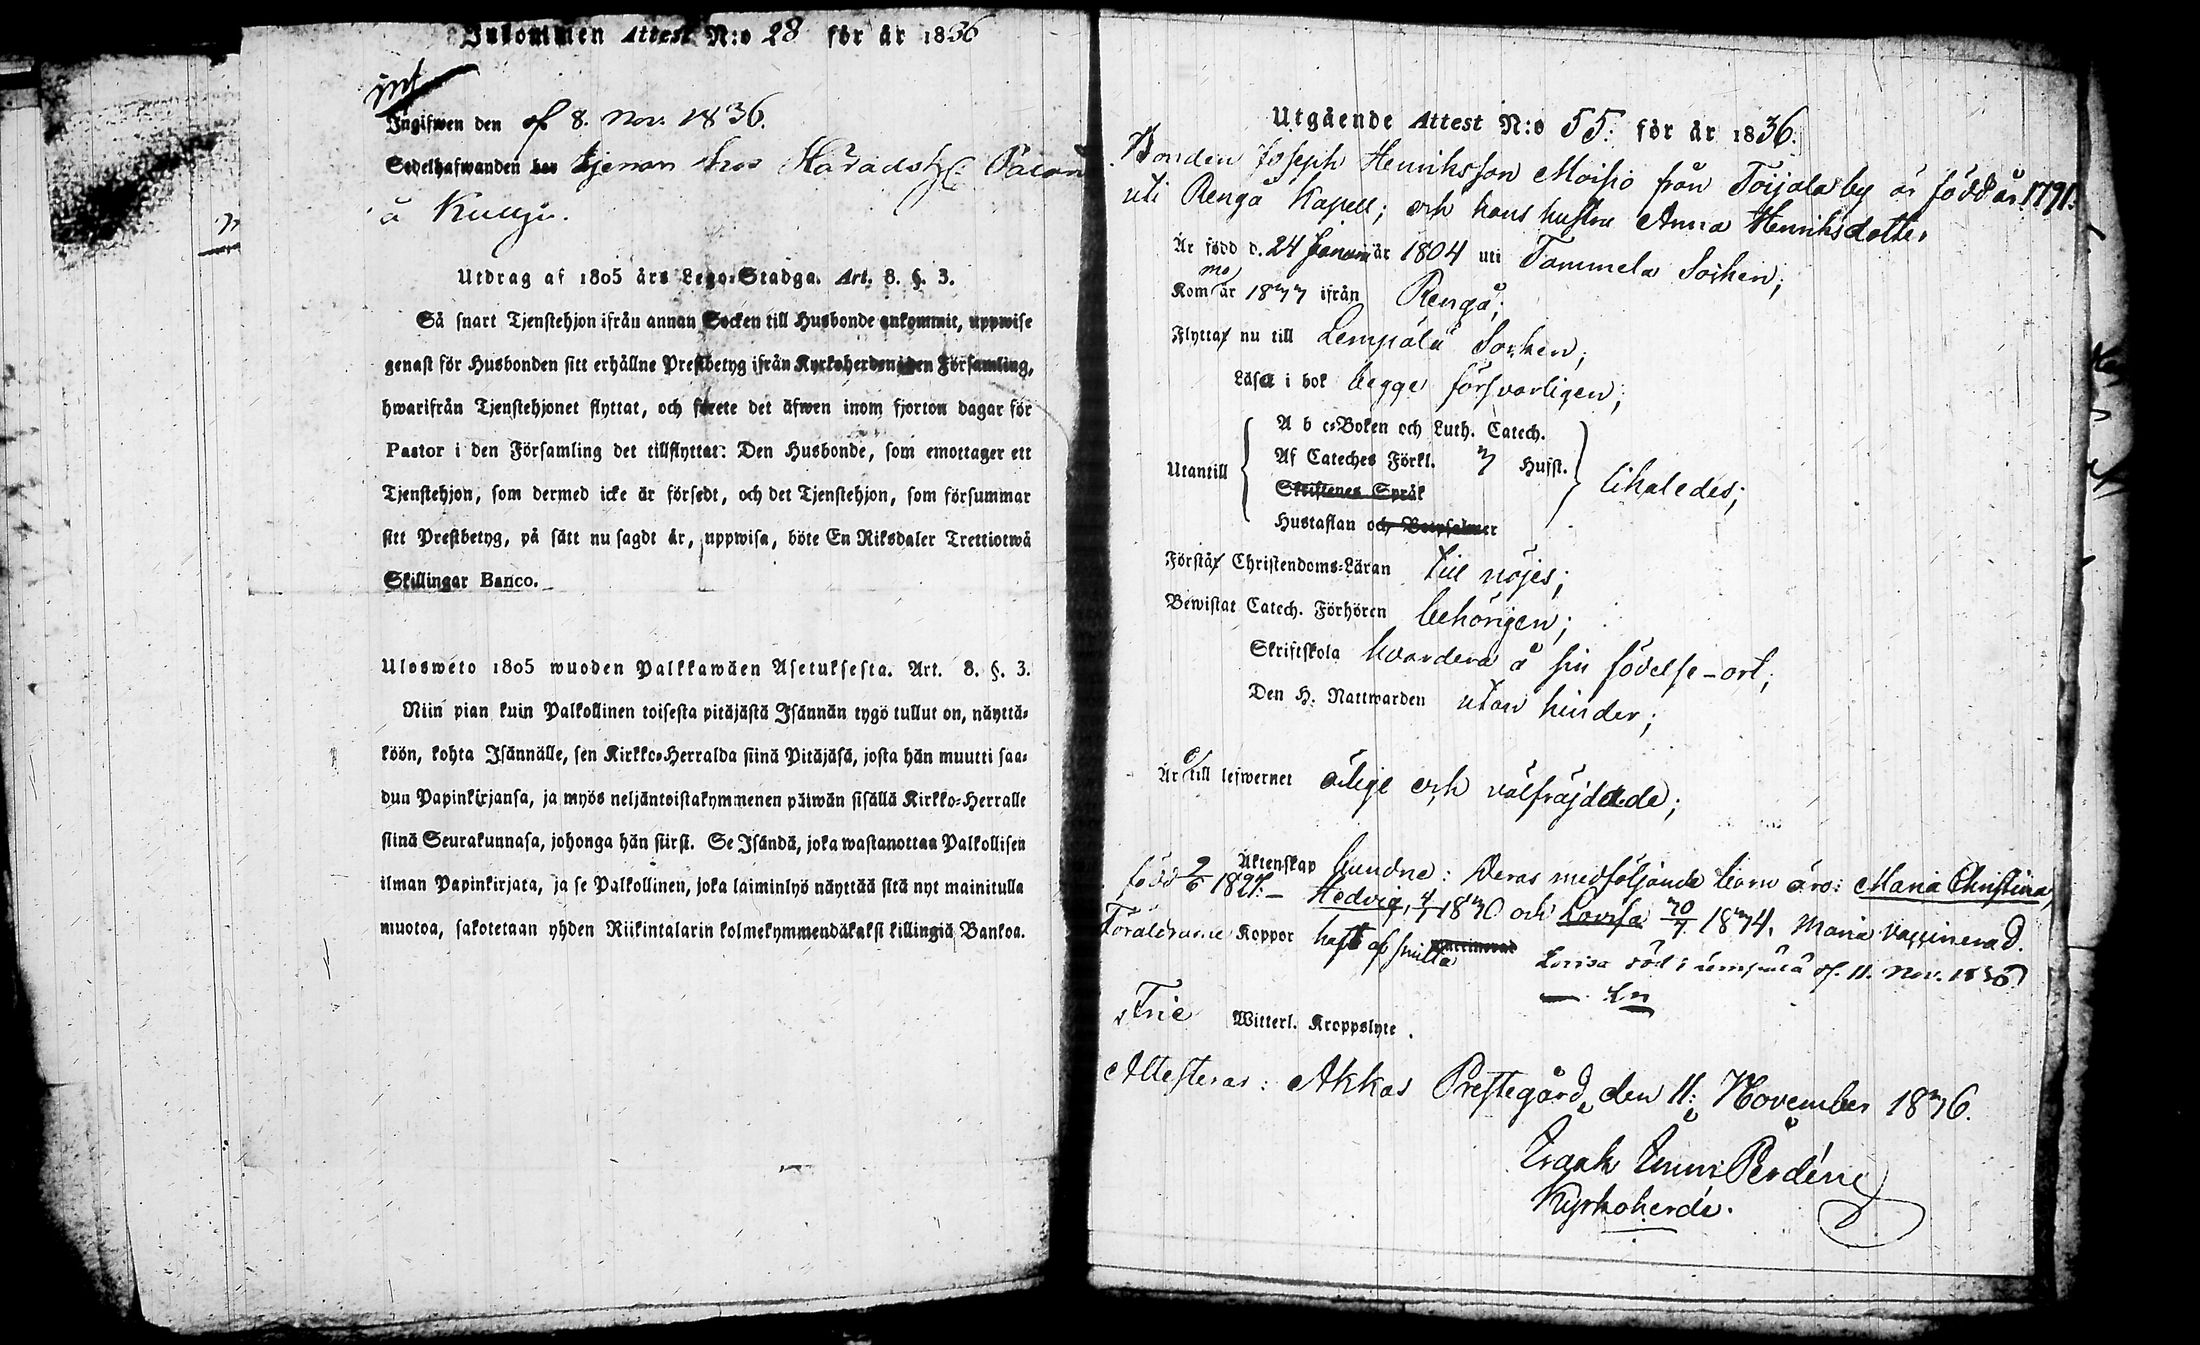 Inkommen Attest N:o 28 för år 1836
int
Ingifwen den 8. Nov. 1836.
Sedelhafwanden har tjenar hos
å
Utdrag af 1805 års Lego-Stadga. Art. 8. §. 3.
Så snart Tjenstehjon ifrån annan Socken till Husbonde ankommit, uppwise
genast för Husbonden sitt erhållne Prestbetyg ifrån Kyrkoherden i den Församling,
hwarifrån Tjenstehjonet flyttat, och förete det äfwen inom fjorton dagar för
Pastor i den Församling det tillflyttat: Den Husbonde, som emottager ett
Tjenstehjon, som dermed icke är försedt, och det Tjenstehjon, som försummar
sitt Prestbetyg, på sätt nu sagdt är, uppwisa, böte En Riksdaler Trettiotwå
Skillingar Banco.
Ulosweto 1805 wuoden Palkkawäen Asetuksesta. Art. 8. §. 3.
Niin pian kuin Palkollinen toisesta pitäjästä Isännän tygö tullut on, näyttä-
köön, kohta Isännälle, sen Kirkko-Herralda siinä Pitäjäsä, josta hän muutti saa-
dun Papinkirjansa, ja myös neljäntoistakymmenen päiwän sisällä Kirkko-Herralle
siinä Seurakunnasa, johonga hän siirsi. Se Isändä, joka wastanottaa Palkollisen
ilman Papinkirjata, ja se Palkollinen, joka laiminlyö näyttää sitä nyt mainitulla
muotoa, sakotetaan yhden Riikintalarin kolmekymmendäkaksi killingiä Bankoa.
Utgående Attest N:o 55. för år 1836.
Bonden Joseph Henriksson Moisio från Toijala by är född år 1791.
uti Rengå Kapell; och hans hustru Anna Henriksdotter
Är född d. 24 Januari är 1804 uti Tammela Socken;
Kom år 1833 ifrån Rengå;
Flyttar nu till Lempälä Socken;
Läsa i bok begge försvarligen;
Utantill
A b c-Boken och Luth. Catech.
Af Cateches Förkl. 3 Hufst.
Skriftenes Språk
Hustaflan och Botpsalmer
likaledes;
Förstår Christendoms-Läran till nöjes;
Bewistat Catech. Förhören behörigen;
Skriftskola hvardera å sin födelse-ort;
Den H. Nattwarden utan hinder;
Är till lefwernet ärlige och välfräjdade;
Äktenskap bundne: Deras medföljande barn äro: Maria Christina,
född 2/6 1827. - Hedvig, 4/1 1830 och Lovisa 30/7 1834. Maria vaccinerad.
Föräldrarne Koppor haft af smitta
Lovisa död i Lempälä 11. Nov. 1836
Frie Witterl. Kroppslyte.
Attesteras: Akkas Prestegård den 11: November 1836.
Kyrkoherde.